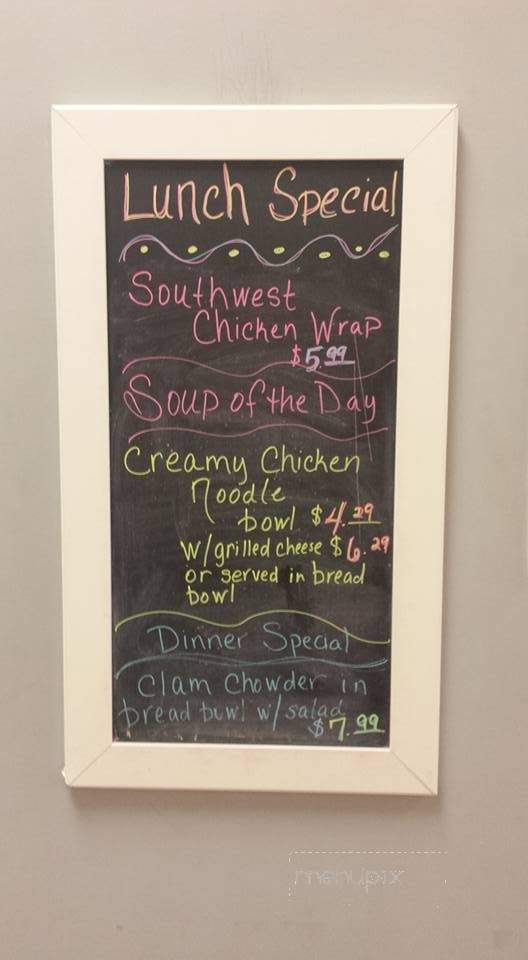 Lunch Special
Southwest
Chicken Wrap
$5.99
Soup of the Day
Creamy Chicken
Noodle
bowl $4.29
w/grilled cheese $6.29
or served in bread
bowl
Dinner Special
Clam Chowder in
bread bowl w/ salad
$7.99
menupix